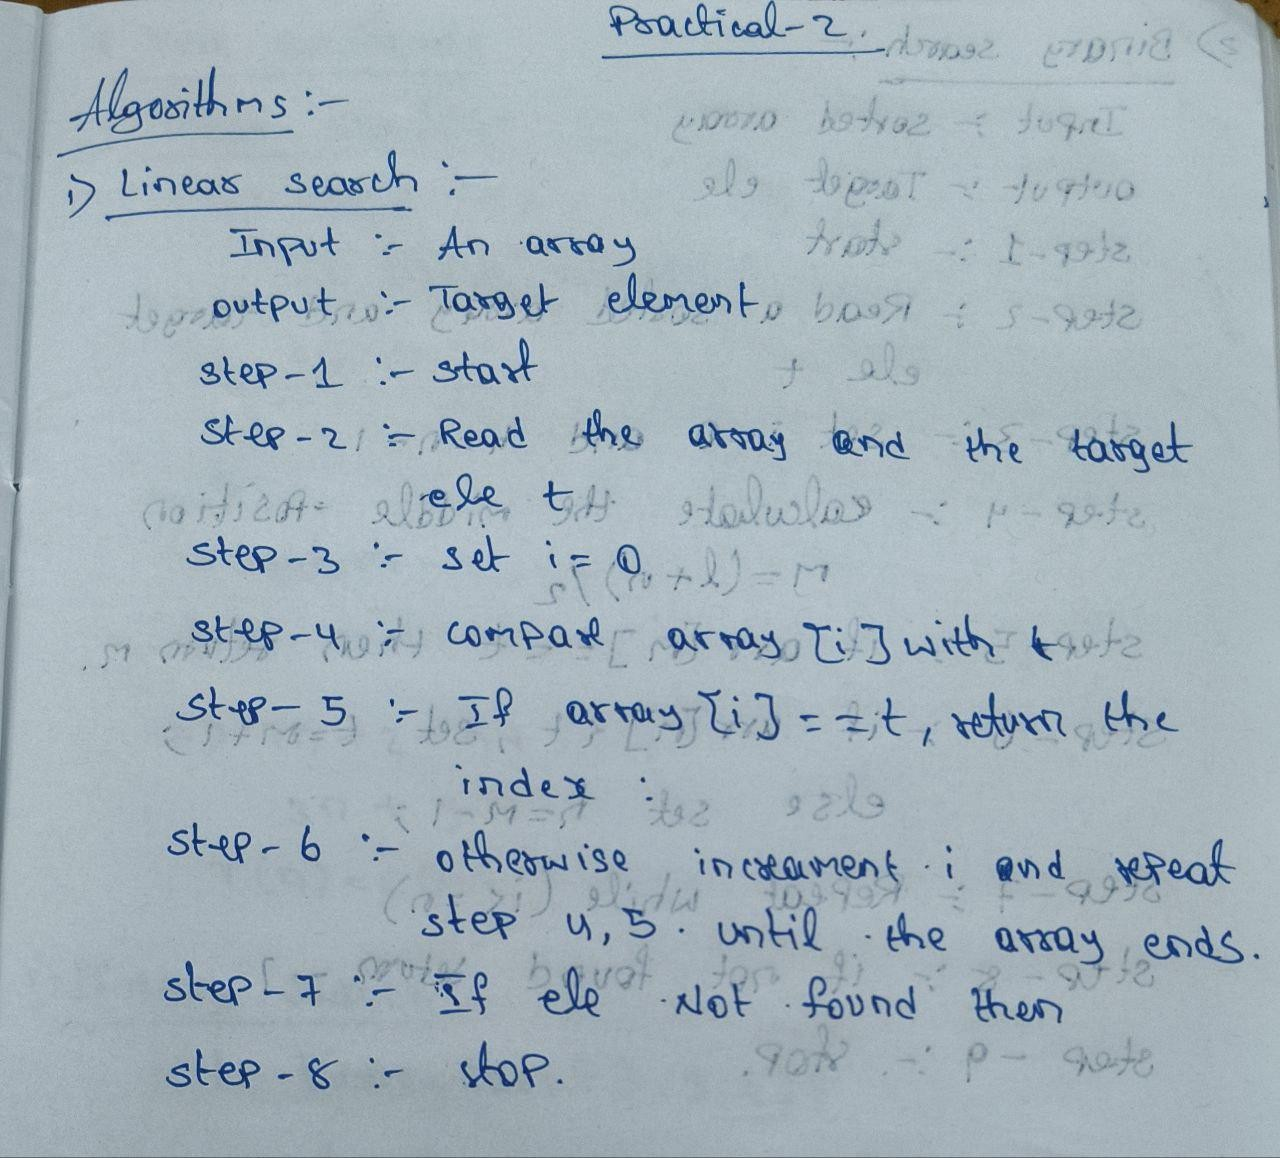 Practical-2.
Algorithms :-
1) Linear search :-
Input :- An array
output :- Target element
step-1 :- start
step-2 :- Read the array and the target
ele t
step-3 :- set i = 0
step-4 :- compare array [i] with t
step-5 :- If array [i] = = t, return the
index :
step-6 :- otherwise increament i and repeat
step 4, 5. until the array ends.
step-7 :- If ele Not found then
step-8 :- stop.